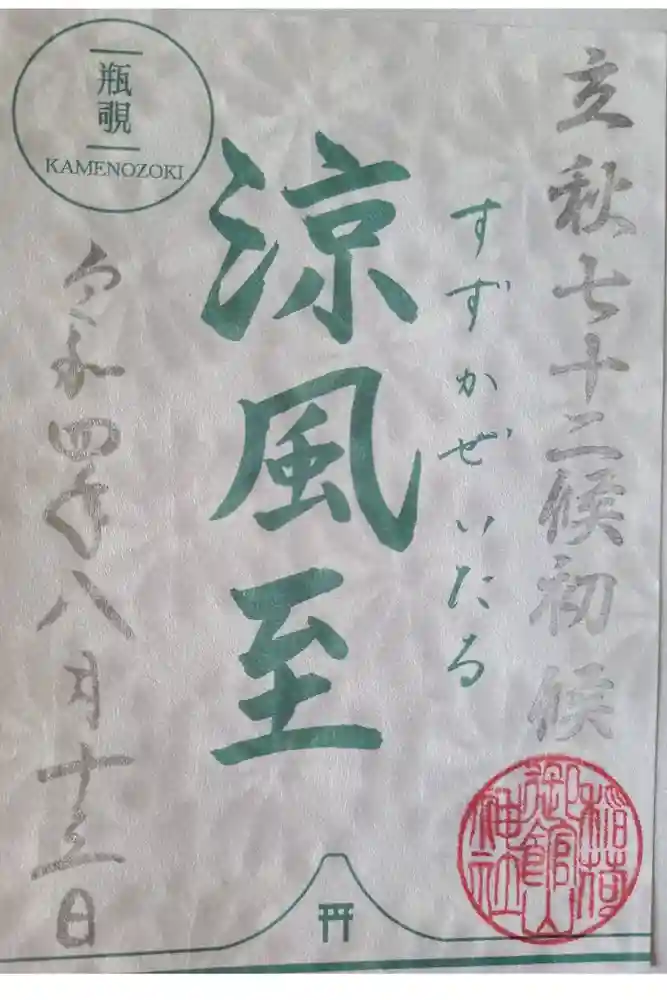 立秋七十二候初候
すずかぜいたる
涼風至
瓶覗
KAMENOZOKI
令和四年八月十三日
稲荷
御館山
神社